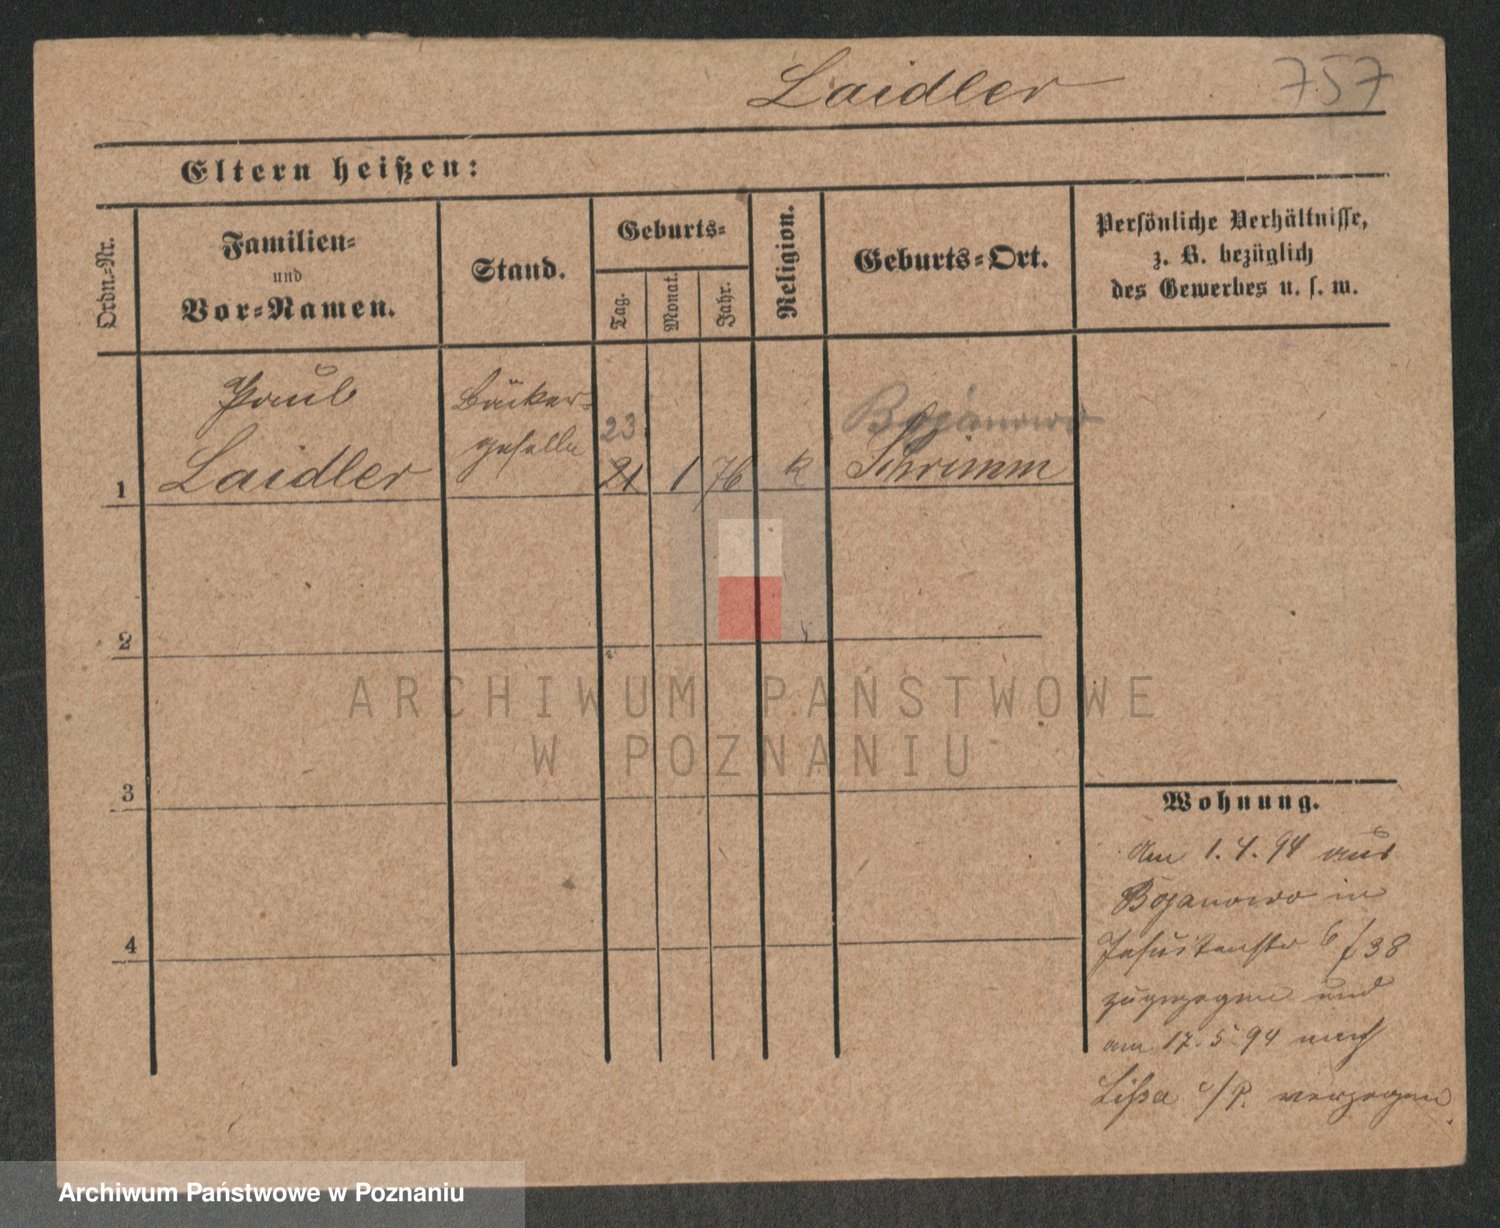 Laidler 757
Eltern heißen:
Ordn.-Nr.
Familien-
und
Vor-Namen.
Stand.
Geburts-
Tag.
Monat.
Jahr.
Religion.
Geburts-Ort.
Persönliche Verhältnisse,
z. B. bezüglich
des Gewerbes u. s. w.
1
Paul
Laidler
Bäcker-
geselle
23
21 1 76 k
Bojanowo
Schrimm
2
3
4
Wohnung.
Am 1.4.94 aus
Bojanowo in
Jesuitenstr 6 / 38
zugezogen und
am 17.5.94 nach
Lissa i/P. verzogen.
ARCHIWUM PAŃSTWOWE
W POZNANIU
Archiwum Państwowe w Poznaniu